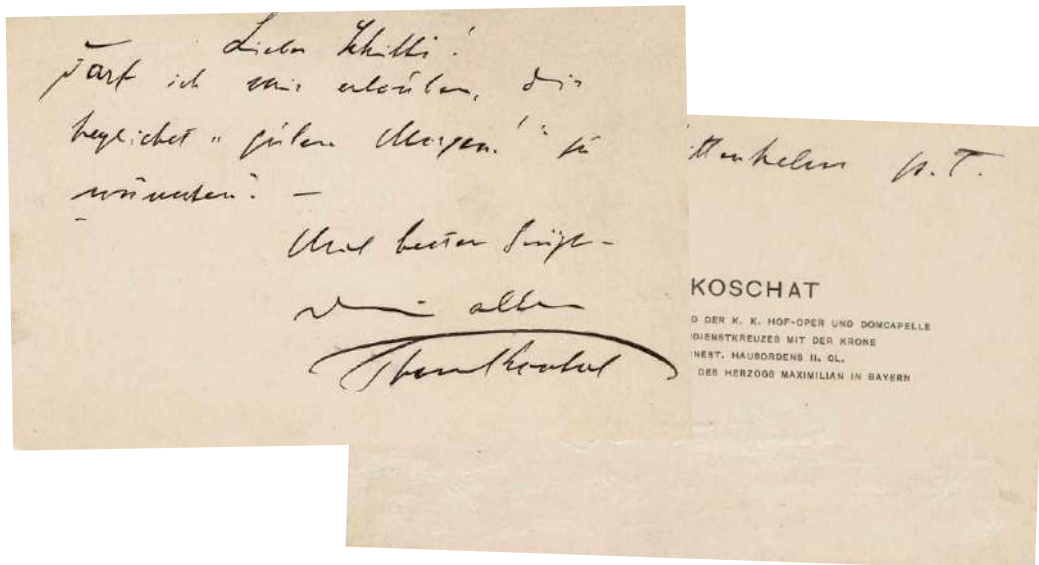 Lieber Schilli!
Darf ich mir erlauben, Dir
herzlichst „guten Morgen!“ zu
wünschen? —
Mit besten Grüßen
Dein alter
KOSCHAT
D DER K. K. HOF-OPER UND DOMCAPELLE
DIENSTKREUZES MIT DER KRONE
NEST. HAUSORDENS II. CL.
DES HERZOGS MAXIMILIAN IN BAYERN